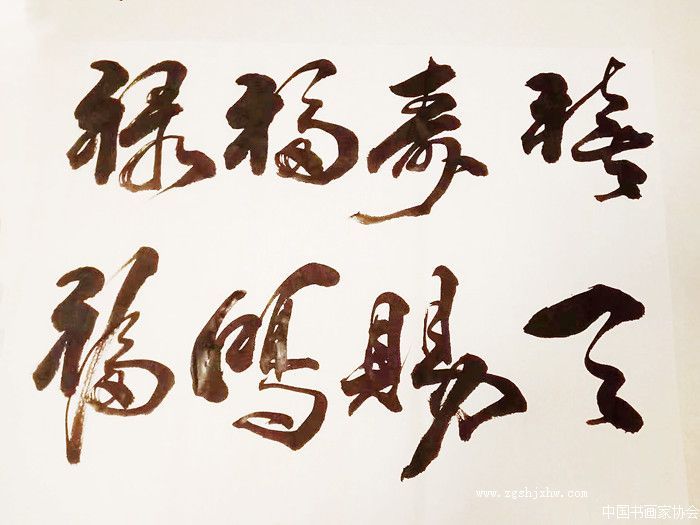 禧寿福禄
天賜鸿福
www.zgshjxhw.com
中国书画家协会